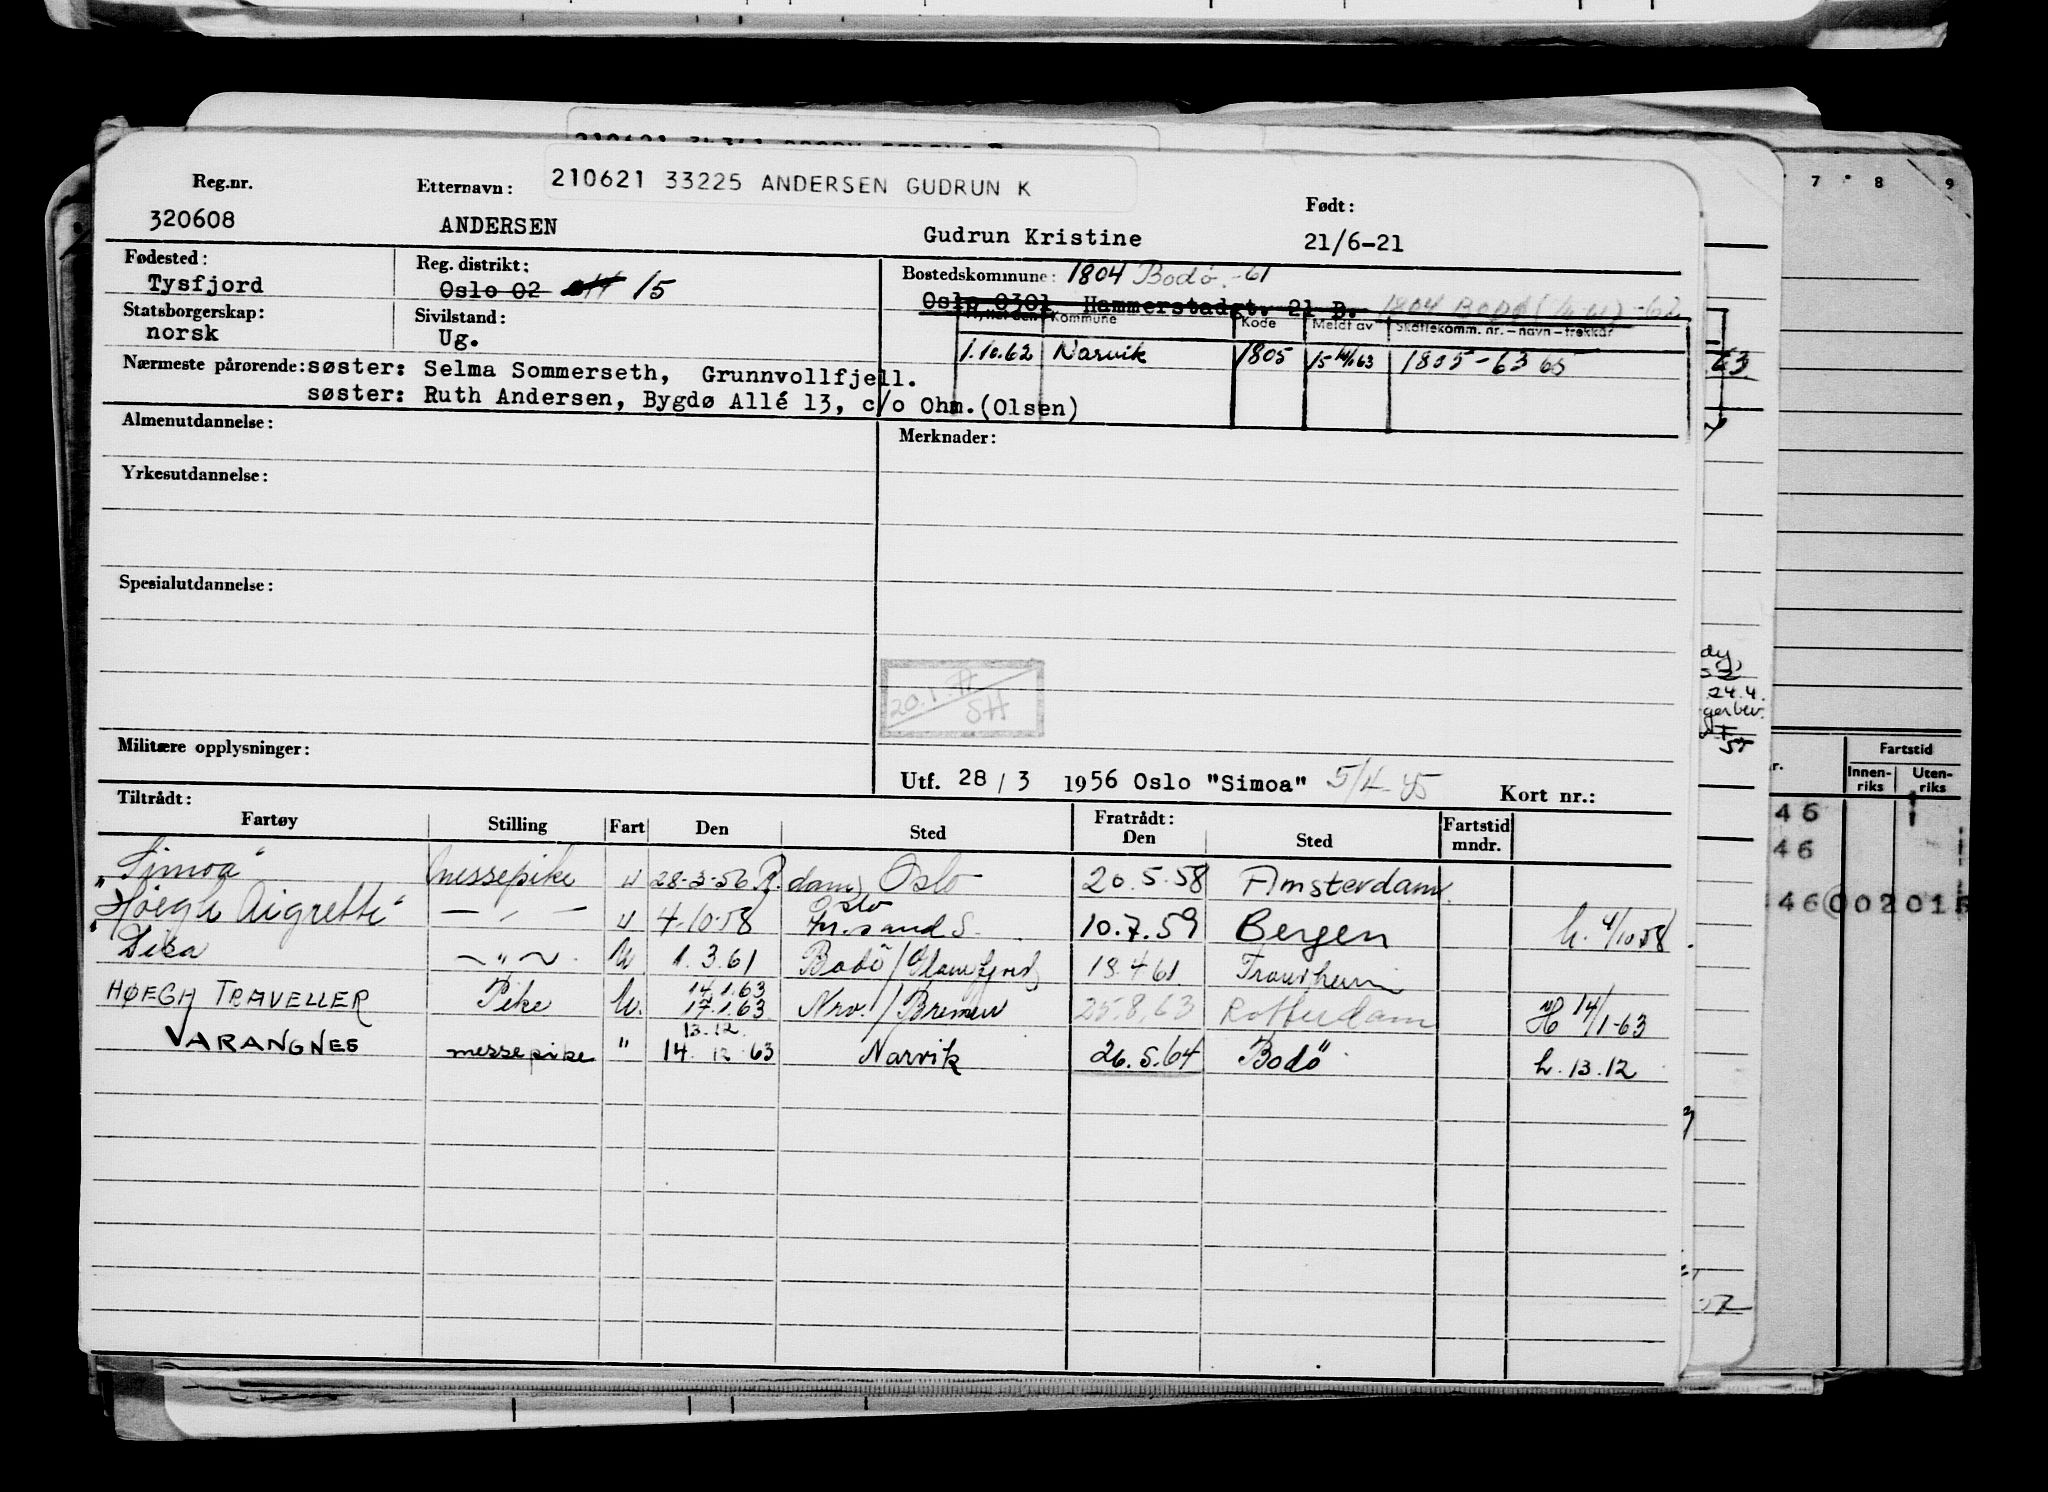 Reg.nr. Etternavn: 210621 33225 ANDERSEN GUDRUN K Født:
320608 ANDERSEN Gudrun Kristine 21/6-21
Fødested: Reg. distrikt: Bostedskommune: 1804 Bodø -61
Tysfjord Oslo 02 15 Oslo 0301 Hammerstadgt. 21 B. 1804 BODØ -62
Statsborgerskap: Sivilstand: Kommune Kode Meldt av Skattekomm. nr. – navn – trekkår
norsk Ug. 1.10.62 Narvik 1805 15-14/1 63 1805-63 65
Nærmeste pårørende: søster: Selma Sommerseth, Grunnvollfjell.
søster: Ruth Andersen, Bygdø Allé 13, c/o Ohm. (Olsen)
Almenutdannelse: Merknader:
Yrkesutdannelse:
Spesialutdannelse:
20.1.
SH
Militære opplysninger:
Utf. 28 / 3 1956 Oslo "Simoa" Kort nr.:
Tiltrådt: Fratrådt:
Fartøy Stilling Fart Den Sted Den Sted Fartstid mndr.
"Simoa" messepike u 28-3-56 R.dam, Oslo 20.5.58 Amsterdam.
Oslo
"Høegh Aigrette" — " — u 4-10-58 Kr.sand S. 10.7.59 Bergen h. 4/10 58
Disa — " — u 1.3.61 Bodö/Glomfjord 18.4 61 Trondheim
14.1.63
HØEGH TRAVELLER Pike u. 17.1.63 Nrv./Bremen 25.8.63 Rotterdam H 14/1-63
13.12.
VARANGNES messepike " 14.12.63 Narvik 26.5.64 Bodö h. 13.12
7 8 9
63
24.4.
Fartstid
Innen-riks Uten-riks
46
46
46 002 01